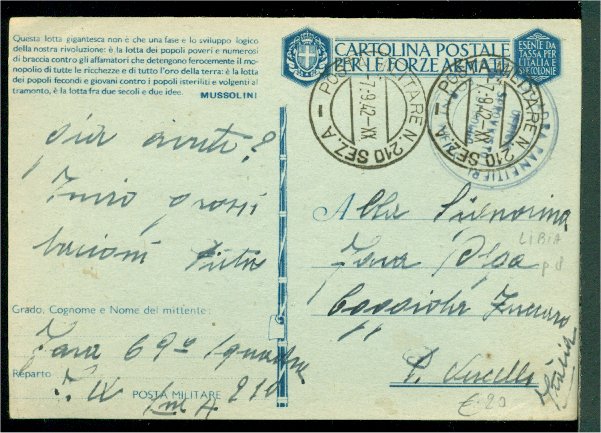 Questa lotta gigantesca non è che una fase e lo sviluppo logico
della nostra rivoluzione: è la lotta dei popoli poveri e numerosi
di braccia contro gli affamatori che detengono ferocemente il mo-
nopolio di tutte le ricchezze e di tutto l'oro della terra: è la lotta
dei popoli fecondi e giovani contro i popoli isteriliti e volgenti al
tramonto, è la lotta fra due secoli e due idee.
MUSSOLINI
CARTOLINA POSTALE
PER LE FORZE ARMATE
ESENTE DA
TASSA PER
L'ITALIA
E COLONIE
POSTA MILITARE N. 210 SEZ. A
-7.9.42 XX
POSTA MILITARE N. 210 SEZ. A
-7.9.42 XX
PANETTIERI
Invio grossi
bacioni
Alla Signorina
LIBIA
Zara Olga
Coggiola
P. Vercelli
Italia
Grado, Cognome e Nome del mittente:
Zara 69ª Squadra
Reparto
POSTA MILITARE 210
€ 20